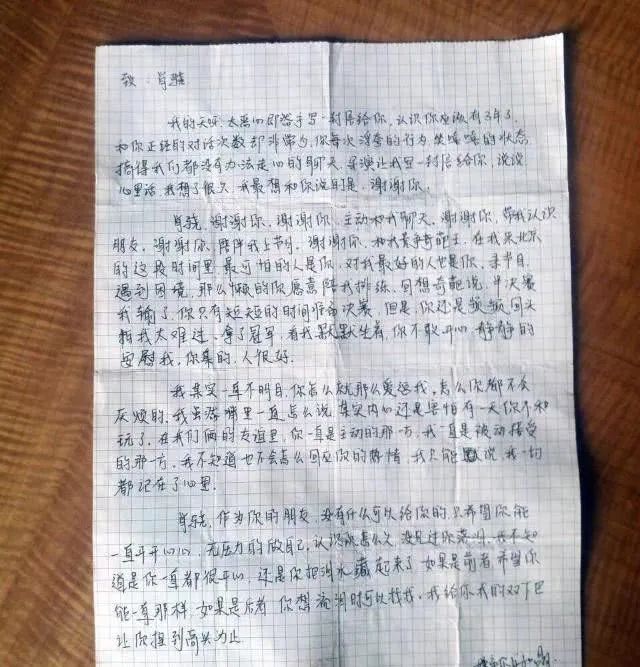 致：肖骁
我的天呀 太恶心即答手写一封信给你，认识你应该有3年了，
和你正经的对话次数却非常少，你每次浮夸的行为 笑嘻嘻的状态
搞得我们都没有办法走心的聊天，导演让我写一封信给你，说说
心里话 我想了很久 我最想和你说的是，谢谢你，
肖骁，谢谢你，谢谢你，主动和我聊天，谢谢你，带我认识
朋友，谢谢你，陪陪我上节目，谢谢你，和我竞争奇葩王，在我来北京
的这段时间里，最可怕的人是你，对我最好的人也是你，录节目
遇到困境，那么懒的你愿意陪我排练，回想奇葩说，半决赛
我输了，你只有短短的时间准备决赛，但是，你还是频频回头
怕我太难过，拿了冠军，看我默默坐着，你不敢开心 静静的
安慰我，你真的，人很好，
我其实一直不明白，你怎么就那么爱逗我，怎么你都不会
厌烦的，我虽然嘴里一直怎么说，其实内心还是害怕有一天你不和
玩了，在我们俩的友谊里，你一直是主动的那一方，我一直是被动接受
的那一方，我不知道也不会怎么回应你的热情，我只能默说，我一切
都记在了心里，
肖骁，作为你的朋友，没有什么可以给你的，只希望你能
一直开开心心，无压力的做自己，认识你怎么久 没见过你落泪，我不知
道是你一直都很开心，还是你把泪水藏起来了 如果是前者 希望你
能一直那样，如果是后者 你想流泪时可以找我，我给你我的双下巴
让你捏到高兴为止